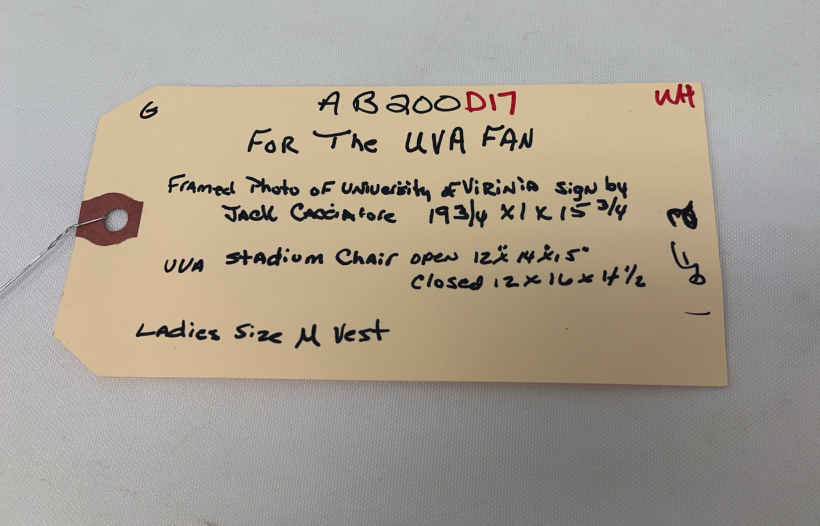 G AB200D17 WH
FOR The UVA FAN
Framed Photo OF University of Virinia Sign by
JACK Cacciatore 19 3/4 x 1 x 15 3/4
UVA Stadium Chair open 12" x 14" x 15"
Closed 12 x 16 x 4 1/2
Ladies Size M Vest